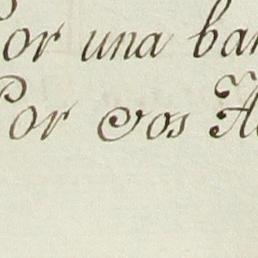 Por una ba
Por dos A